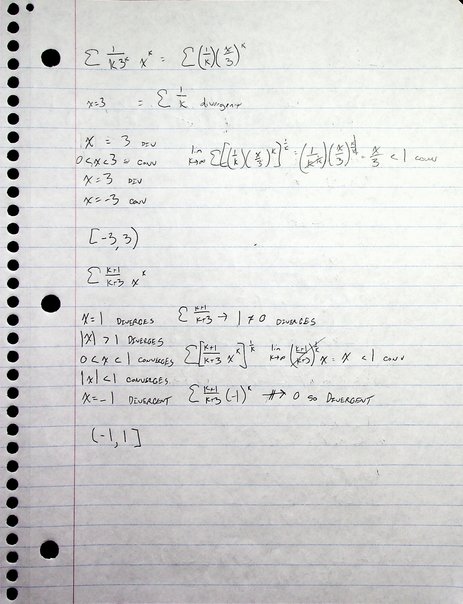 Σ 1/(k3^k) x^k = Σ(1/k)(x/3)^k
x=3 = Σ 1/k divergent
x = 3 DIV
0<x<3 = CONV lim k→∞ Σ[(1/k)(x/3)^k]^(1/k) = (1/k^(1/k))(x/3)^(k/k) = x/3 < 1 CONV
x = 3 DIV
x = -3 CONV
[-3, 3)
Σ (k+1)/(k+3) x^k
x=1 DIVERGES Σ (k+1)/(k+3) → 1 ≠ 0 DIVERGES
|x| > 1 DIVERGES
0<x<1 CONVERGES Σ[(k+1)/(k+3) x^k]^(1/k) lim k→∞ ((k+1)/(k+3))^(1/k) x = x < 1 CONV
|x| < 1 CONVERGES
x=-1 DIVERGENT Σ (k+1)/(k+3) (-1)^k ↛ 0 SO DIVERGENT
(-1, 1]